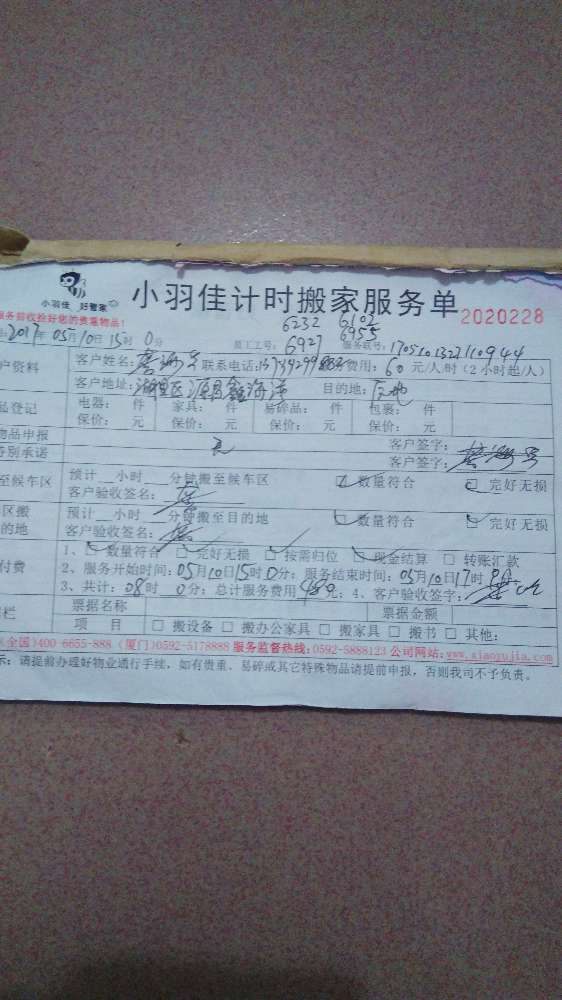 小羽佳 好管家
小羽佳计时搬家服务单
2020228
服务前收拾好您的贵重物品!
6232 6102
2017年05月10日15时0分 员工工号: 6927 6955 服务单号:
户资料 客户姓名: 联系电话: 费用:60元/人/时(2小时起/人)
客户地址:湖里区 目的地:
品登记 电器: 件 家具: 件 易碎品: 件 包裹: 件
保价: 元 保价: 元 保价: 元 保价: 元
物品申报 无 客户签字:
特别承诺 客户签字:
至候车区 预计__小时__分钟搬至候车区 数量符合 完好无损
客户验收签名:
区搬 预计__小时__分钟搬至目的地 数量符合 完好无损
的地 客户验收签名:
1、 数量符合 完好无损 按需归位 现金结算 转账汇款
付费 2、服务开始时间:05月10日15时0分; 服务结束时间:05月10日17时
3、共计:08时 0分;总计服务费用 元; 4、客户验收签字:
栏 票据名称 票据金额
项 目 搬设备 搬办公家具 搬家具 搬书 其他:
(全国)400-6655-888 (厦门)0592-5178888 服务监督热线:0592-5888123 公司网站:www.xiaoyujia.com
示: 请提前办理好物业通行手续,如有贵重、易碎或其它特殊物品请提前申报,否则我司不予负责。